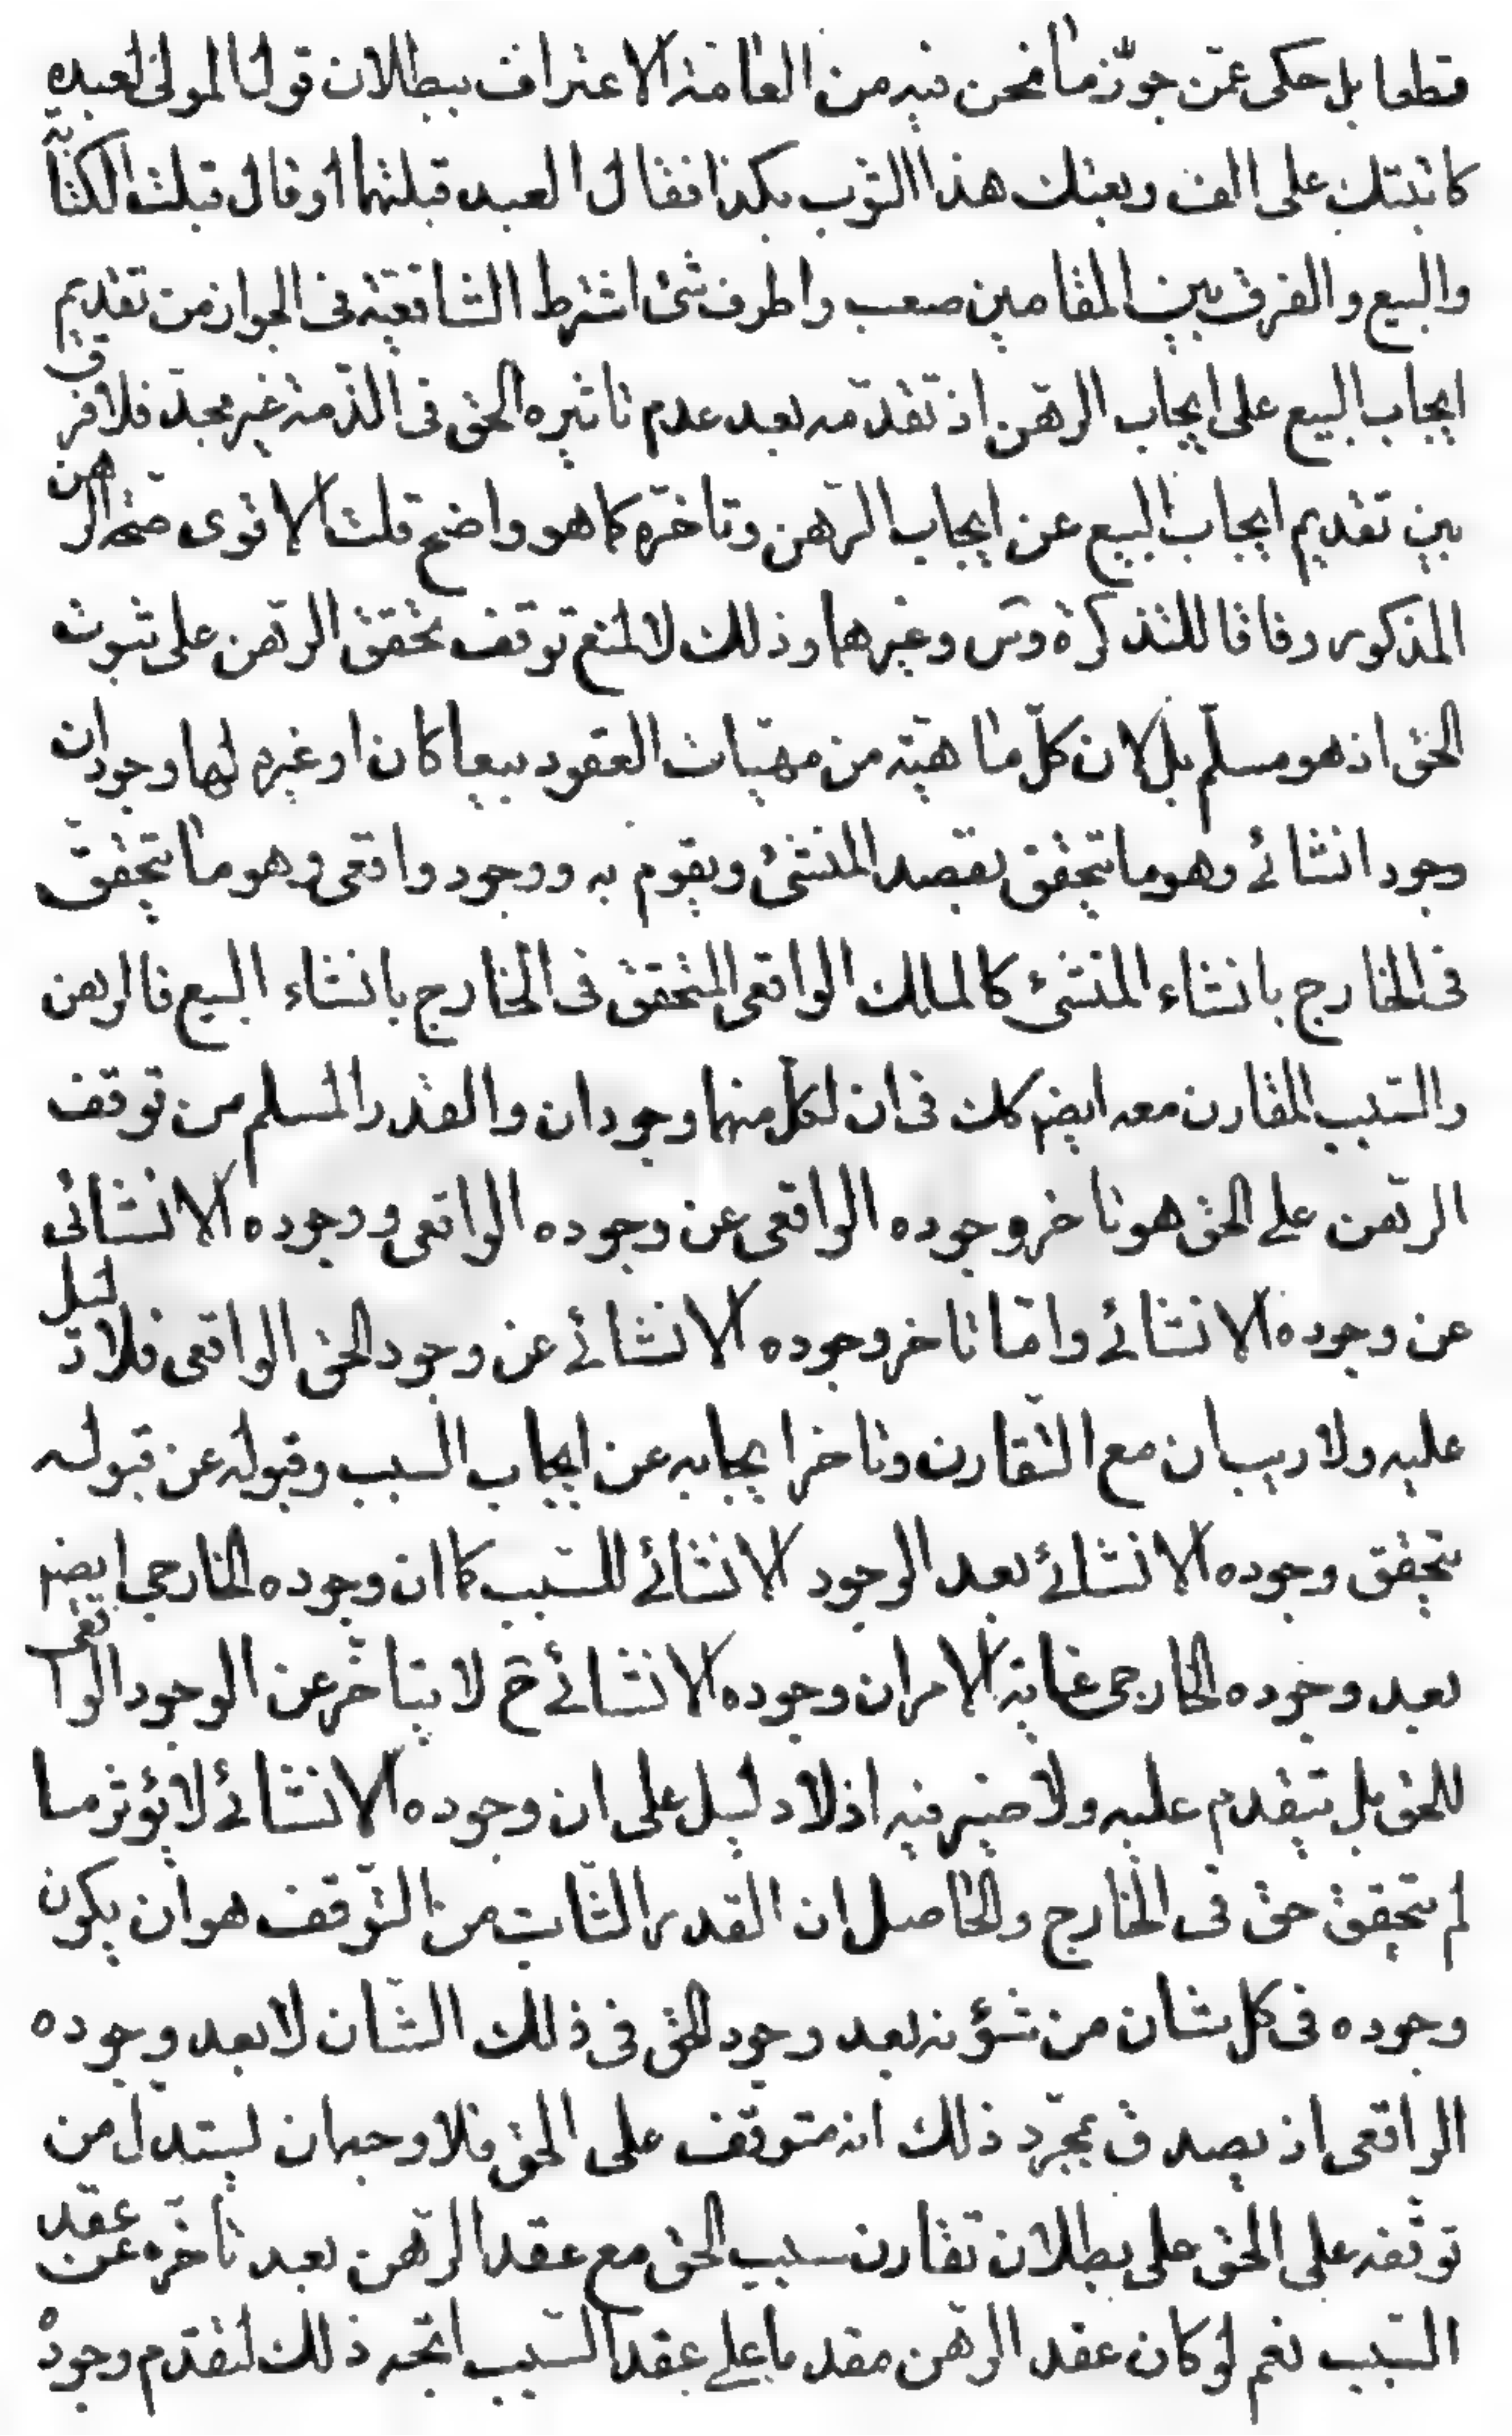 قطعا بل حكى عمّن جوّز ما نحن فيه من العامّة الاعتراف ببطلان قول المولى لعبده
كاتبتك على الف وبعتك هذا الثوب بكذا فقال العبد قبلتهما او قال قبلت الكتابة
والبيع والفرق بين المقامين صعب واطرف شئ اشترط الشافعيّة فى الجواز من تقديم
ايجاب البيع على ايجاب الرّهن اذ تقدّمه بعد عدم تاثيره الحق فى الذّمة غير مجد فلا فرق
بين تقديم ايجاب البيع عن ايجاب الرّهن وتاخّره كما هو واضح قلت الاقوى صحّة الرهن
المذكور وفاقا للتذكرة وس وغيرهما وذلك لا لمنع توقف تحقق الرّهن على ثبوت
الحق اذ هو مسلّم بل لان كلّ ماهيّة من مهيّات العقود بيعا كان او غيره لها وجودان
وجود انشائے وهو ما يتحقق بقصد المنشئ ويقوم به ووجود واقعى وهو ما يتحقّق
فى الخارج بانشاء المنشئ كالملك الواقعى المتحقق فى الخارج بانشاء البيع فالرهن
والسّبب المقارن معه ايضم كك فى ان لكلّ منهما وجودان والقدر المسلم من توقف
الرّهن على الحق هو تاخر وجوده الواقعى عن وجوده الواقعى ووجوده الانشائى
عن وجوده الانشائے وامّا تاخر وجوده الانشائے عن وجود الحق الواقعى فلا دليل
عليه ولا ريب ان مع التقارن وتاخر ايجابه عن ايجاب السبب وقبوله عن قبوله
يتحقق وجوده الانشائے بعد الوجود الانشائے للسّبب كما ان وجوده الخارجى ايضم
بعد وجوده الخارجى غاية الامر ان وجوده الانشائے ح لا يتاخّر عن الوجود الواقعى
للحق بل يتقدم عليه ولا ضير فيه اذ لا دليل على ان وجوده الانشائے لا يؤثر ما
لم يتحقق حق فى الخارج والحاصل ان القدر الثّابت من التّوقف هو ان يكون
وجوده فى كل شان من شؤنه بعد وجود الحق فى ذلك الشّان لا بعد وجوده
الواقعى اذ يصدق بمجرّد ذلك انه متوقّف على الحق فلا وجه لان يستدلّ من
توقفه على الحق على بطلان تقارن سبب الحق مع عقد الرّهن بعد تاخّره عن عقد
السّبب نعم لو كان عقد الرّهن مقدما على عقد السّبب اتّجه ذلك لتقدم وجوده